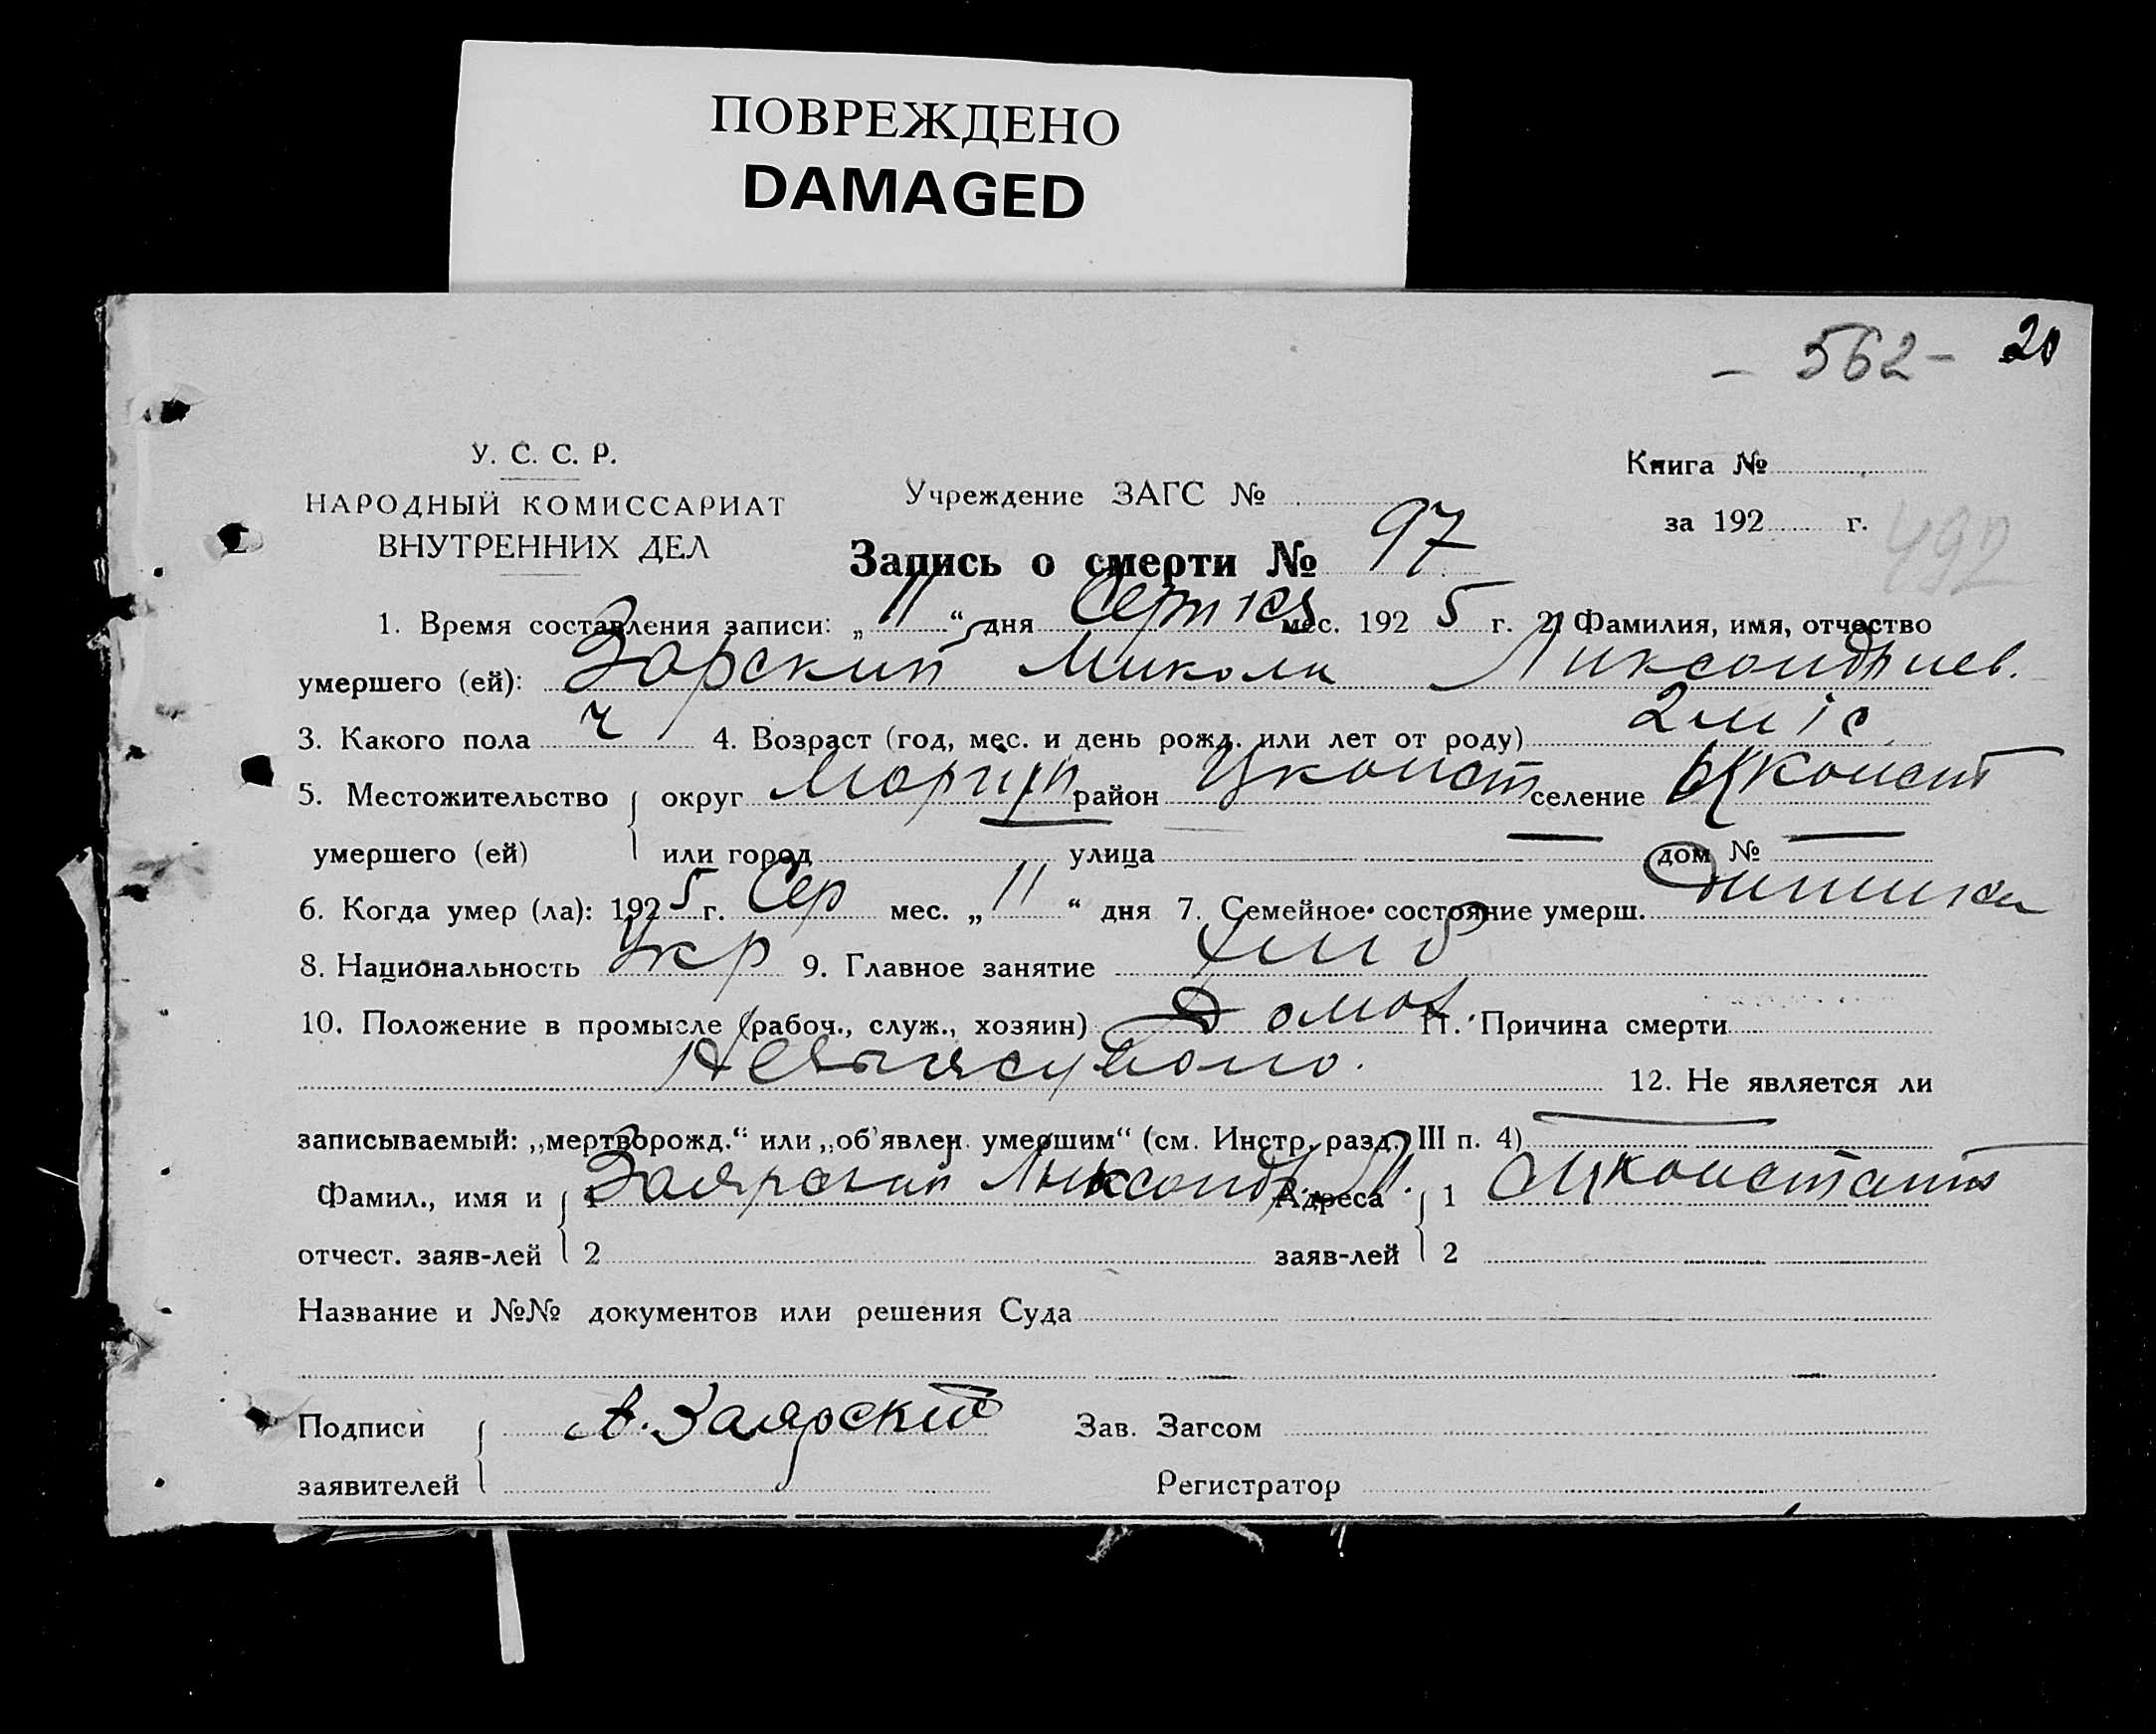 ПОВРЕЖДЕНО
DAMAGED
- 562 - 20
У. С. С. Р.
НАРОДНЫЙ КОМИССАРИАТ
ВНУТРЕННИХ ДЕЛ
Учреждение ЗАГС №
Книга №
за 192 г.
492
Запись о смерти № 97
1. Время составления записи: „11“ дня мес. 192 5 г. 2. Фамилия, имя, отчество
умершего (ей): Зарский Микола
3. Какого пола ч 4. Возраст (год, мес. и день рожд. или лет от роду) 2 міс
5. Местожительство округ район селение
умершего (ей) или город улица дом №
6. Когда умер (ла): 192 5 г. Сер мес. „11“ дня 7. Семейное состояние умерш.
8. Национальность Укр 9. Главное занятие хліб
10. Положение в промысле (рабоч., служ., хозяин) 11. Причина смерти
12. Не является ли
записываемый: „мертворожд.“ или „об'явлен умершим“ (см. Инстр. разд. III п. 4)
Фамил., имя и 1 Заярский Адреса 1
отчест. заяв-лей 2 заяв-лей 2
Название и №№ документов или решения Суда
Подписи А. Заярский Зав. Загсом
заявителей Регистратор